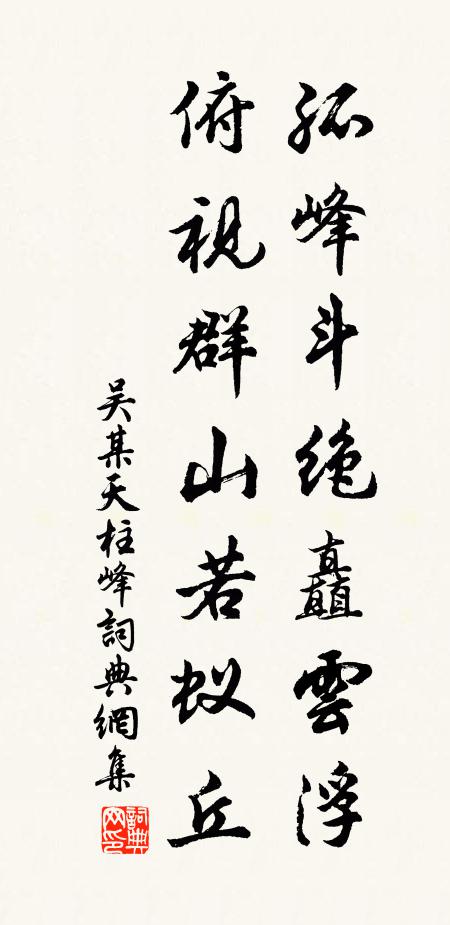 孤峰斗绝矗雲浮
俯視群山若蚁丘
吴某天柱峰詞典網集
詞典网印